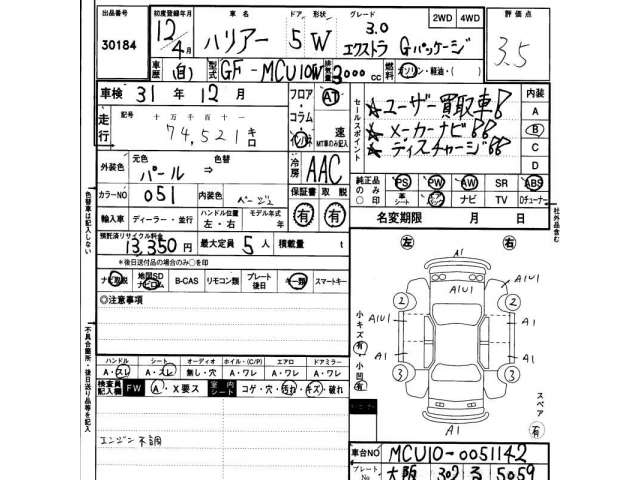 出品番号 30184
初度登録年月 12年 4月
車名 ハリアー
ドア 5 形状 W
グレード 3.0 エクストラ Gパッケージ
2WD 4WD
評価点 3.5
車歴 (自) 型式 GF-MCU10W 排気量 3000cc 燃料 ガソリン・軽油・( )
車検 31年 12月
フロア・コラム・インパネ AT 速 MT車のみ記入
走行 記号 十万 千 百 十 一 74,521 キロ
セールスポイント
☆ユーザー買取車!
☆メーカーナビ!!
☆ディスチャージ!!
内装 A B C D
外装色 元色 パール ⇒ 色替
冷房 AAC
純正品のみ○印 PS PW AW SR ABS
革シート ナビ TV Dチューナー
カラーNO 051 内装色 ベージュ
保証書 有 取説 有
名変期限 月 日
輸入車 ディーラー・並行 ハンドル位置 左・右 モデル年式 年
預託済リサイクル料金 13,350円 最大定員 5人 積載量 t
*後日送付品の場合のみ○を印
ナビ取説 地図SDナビロム B-CAS リモコン類 プレート後日 キー類 スマートキー
◎注意事項
ハンドル シート オーディオ ホイル・(C/P) エアロ ドアミラー
A・スレ A・スレ 無し・穴 A・ワレ A・ワレ A・ワレ
検査員記入欄 FW A・X要ス 室内シート コゲ・穴・汚れ・キズ・破れ
エンジン不調
色替車は記入しない
不具合箇所・後日送り品等を記入
社外品含む
左 右
A1
A1U1 A1U1
2 2
A1U1 A1
A1 A1
3 3
A1
小キズ 有・小凹 有
スペア 有
車台NO MCU10-0051142
プレートNo 大阪 302 る 5059